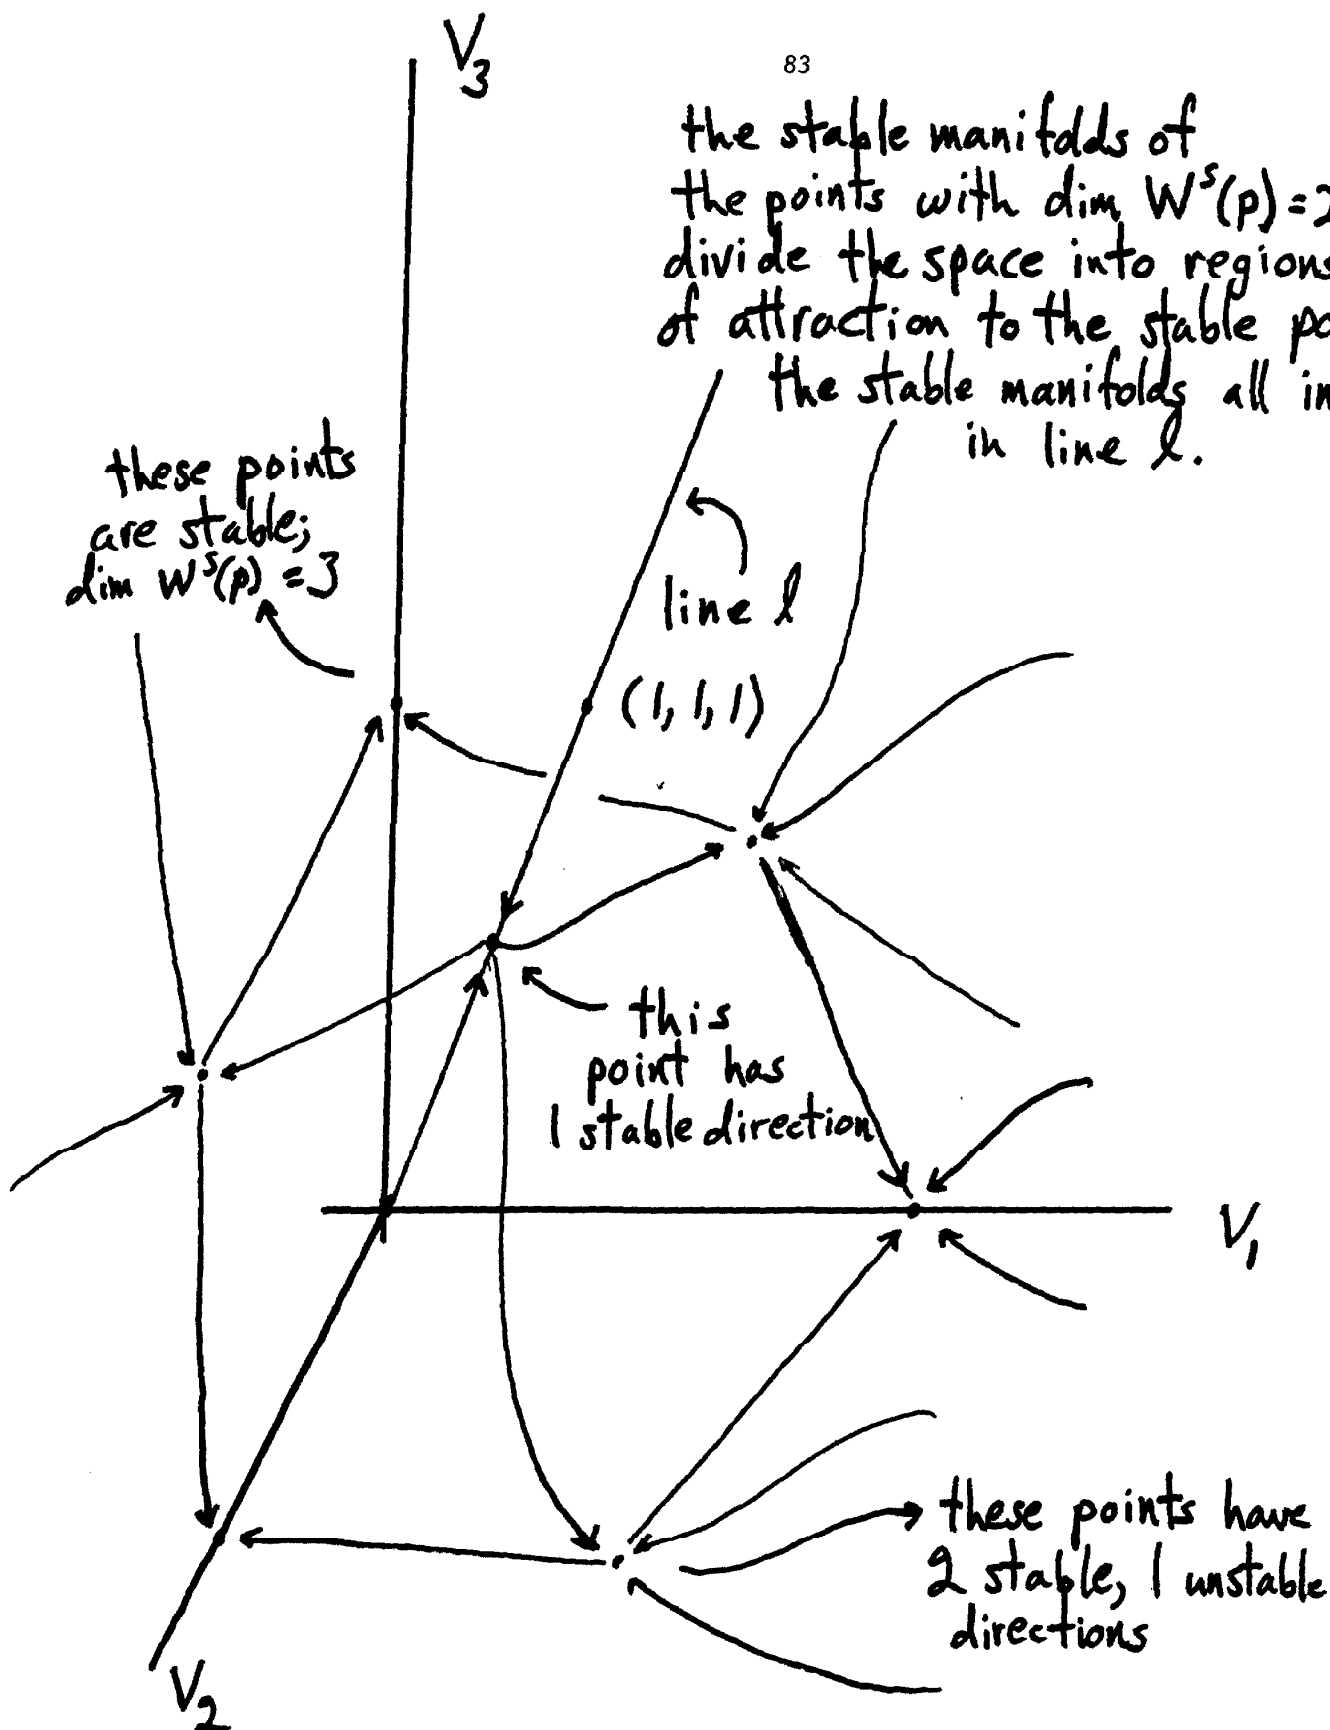 V3
83
the stable manifolds of
the points with dim W^s(p) = 2
divide the space into regions
of attraction to the stable
the stable manifolds all
in line l.
these points
are stable;
dim W^s(p) = 3
line l
(1, 1, 1)
this
point has
1 stable direction
V1
these points have
2 stable, 1 unstable
directions
V2